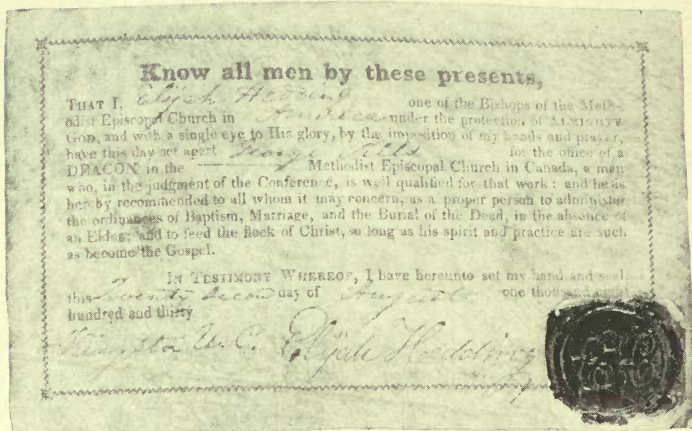 Know all men by these presents,
THAT I, Elijah Hedding one of the Bishops of the Meth-
odist Episcopal Church in America under the protection of ALMIGHTY
GOD, and with a single eye to His glory, by the imposition of my hands and prayer,
have this day set apart George for the office of a
DEACON in the Methodist Episcopal Church in Canada, a man
who, in the judgment of the Conference, is well qualified for that work: and he is
hereby recommended to all whom it may concern, as a proper person to administer
the ordinances of Baptism, Marriage, and the Burial of the Dead, in the absence of
an Elder: and to feed the flock of Christ, so long as his spirit and practice are such
as become the Gospel.
IN TESTIMONY WHEREOF, I have hereunto set my hand and seal
this Twenty second day of August one thousand eight
hundred and thirty
Kingston U.C. Elijah Hedding